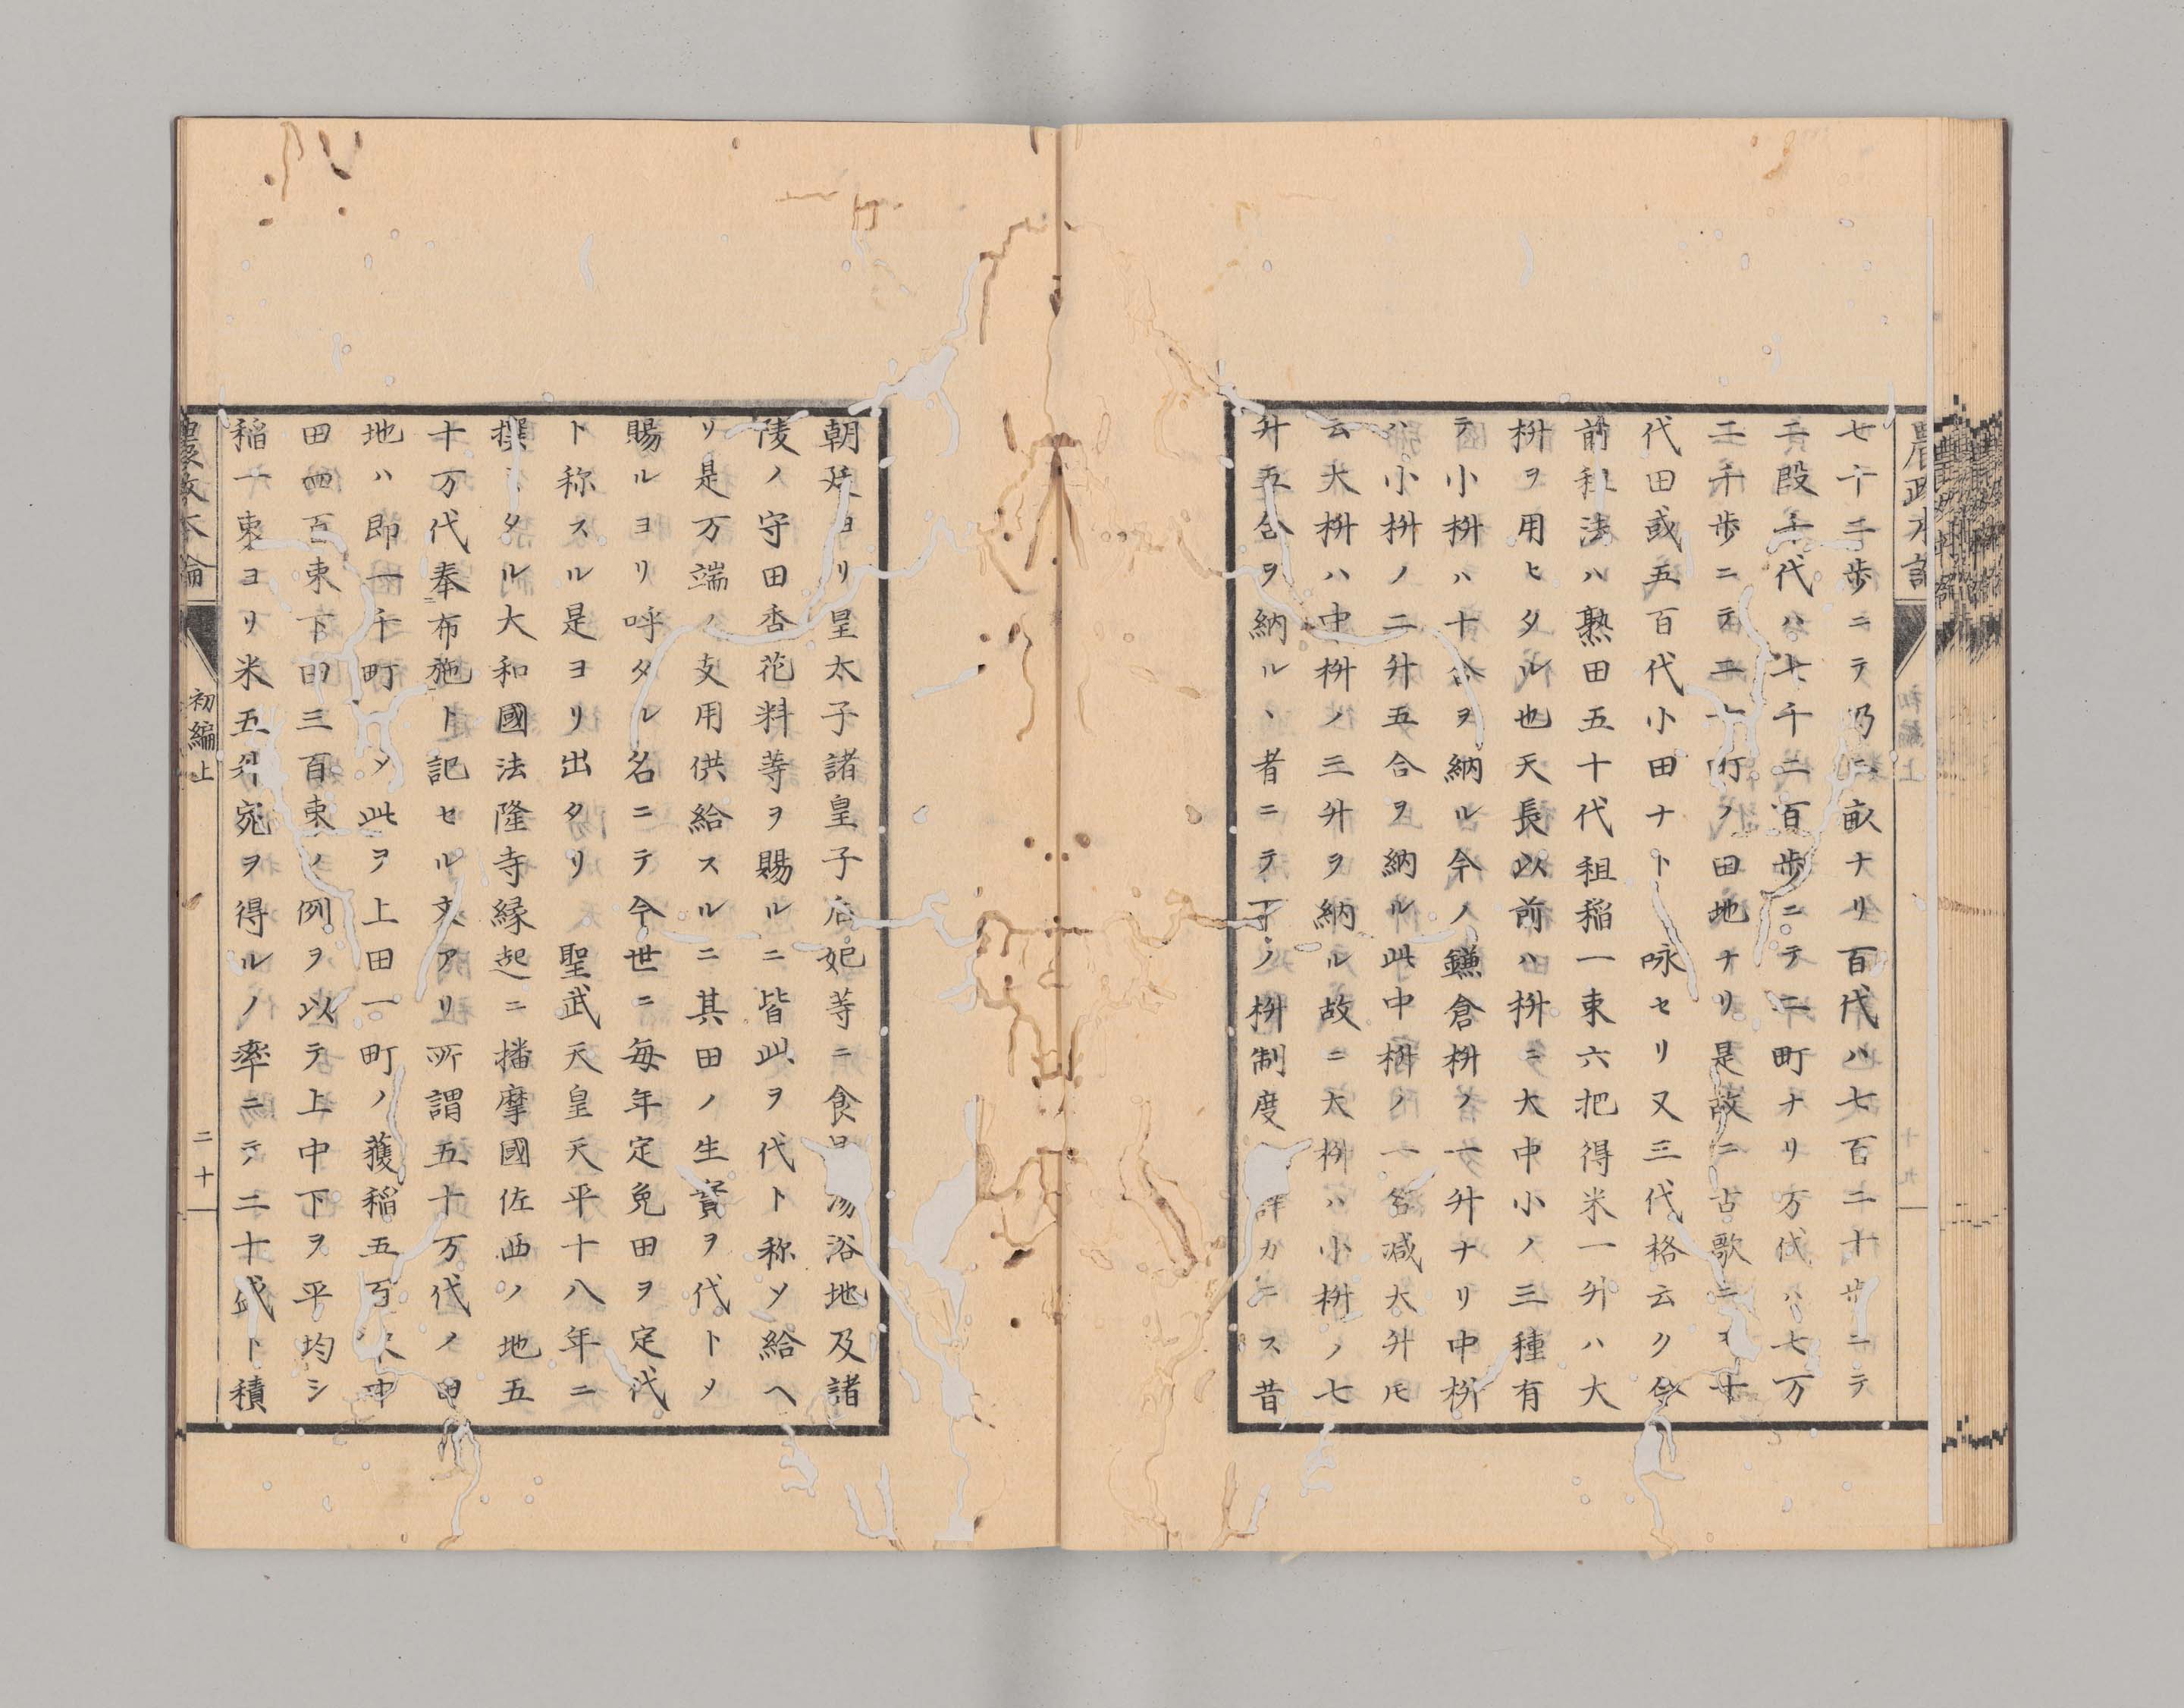 七十二歩ニテ乃二畝ナリ百代ハ七百二十歩ニテ
二段千代ハ七千二百歩ニテ二町ナリ万代ハ七万
二千歩ニテ二十町ノ田地ナリ是故ニ古歌ニヲ十
代田或五百代小田ナト咏セリ又三代格云ク令
前租法ハ熟田五十代租稲一束六把得米一升ハ大
枡ヲ用ヒタル也天長以前ハ枡ニ大中小ノ三種有
テ小枡ハ十合ヲ納ル今ノ鎌倉枡ノ一升ナリ中枡
ハ小枡ノ二升五合ヲ納ル此中枡ノ一名減大升ト
云大枡ハ中枡ノ三升ヲ納ル故ニ大枡ハ小枡ノ七
升五合ヲ納ルヽ者ニテ丁ノ枡制度 詳カニス昔
朝廷ヨリ皇太子諸皇子后妃等ニ食 湯浴地及諸
陵ノ守田香花料等ヲ賜ルニ皆此ヲ代ト称メ給ヘ
リ是万端ノ支用供給スルニ其田ノ生實ヲ代トメ
賜ルヨリ呼タル名ニテ今世ニ毎年定免田ヲ定代
ト称スル是ヨリ出タリ 聖武天皇天平十八年ニ
撰 タル大和國法隆寺縁起ニ播摩國佐西ノ地五
十万代奉布施ト記セル文アリ所謂五十万代ノ田
地ハ即一千町 メ此ヲ上田一町ノ獲稲五百 中
田四百束下田三百束ノ例ヲ以テ上中下ヲ平均シ
稲一束ヨリ米五升宛ヲ得ルノ率ニテ二十 ト積
農政本論
初編上
二十